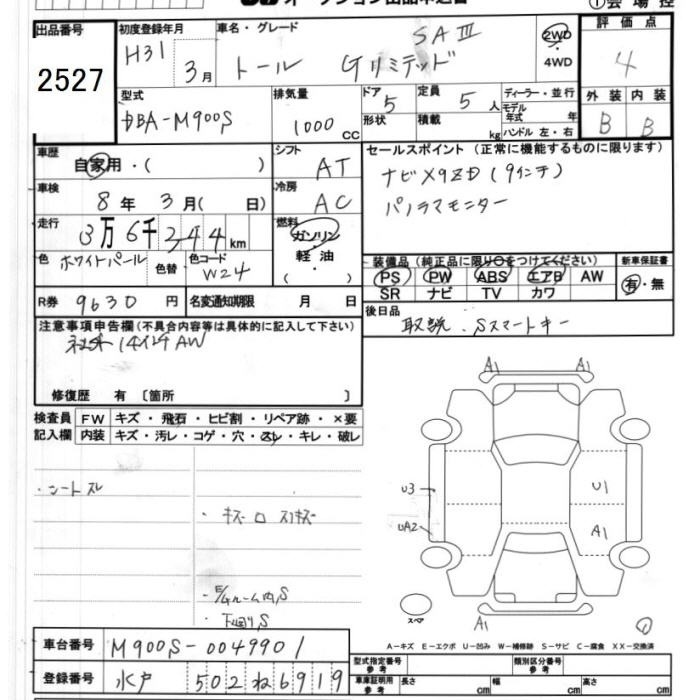 オークション出品申込書
①会場控
出品番号
2527
初度登録年月
H31 3月
車名・グレード
トール Gリミテッド SAⅢ
2WD
・
4WD
評価点
4
型式
DBA-M900S
排気量
1000 CC
ドア 5
形状
定員 5 人
積載 kg
ディーラー・並行
モデル年式 年
ハンドル 左・右
外装 内装
B B
車歴
自家用・( )
シフト
AT
車検
8年 3月( 日)
冷房
AC
走行
3万6千344km
燃料
ガソリン
軽油
( ・ )
色
ホワイトパール
色替
色コード
W24
R券 9630円
名変通知期限 月 日
セールスポイント (正常に機能するものに限ります)
ナビX9ZD (9インチ)
パノラマモニター
装備品 (純正品に限り○をつけてください)
PS PW ABS エアB AW
SR ナビ TV カワ
新車保証書
有・無
後日品
取説、Sスマートキー
注意事項申告欄(不具合内容等は具体的に記入して下さい)
社外14インチAW
修復歴 有 〔箇所 〕
検査員 FW キズ・飛石・ヒビ割・リペア跡・×要
記入欄 内装 キズ・汚レ・コゲ・穴・スレ・キレ・破レ
・シートスレ
・キズ ロ スリキズ
・E/gルーム内S
・下廻りS
A1 A1
U3
U1
UA2
A1
スペア
A1
A-キズ E-エクボ U-凹み W-補修跡 S-サビ C-腐食 XX-交換済
車台番号 M900S-0049901
登録番号 水戸 502 ね 6919
型式指定番号 参考
類別区分番号 参考
車庫証明用 参考 長さ cm 幅 cm 高さ cm